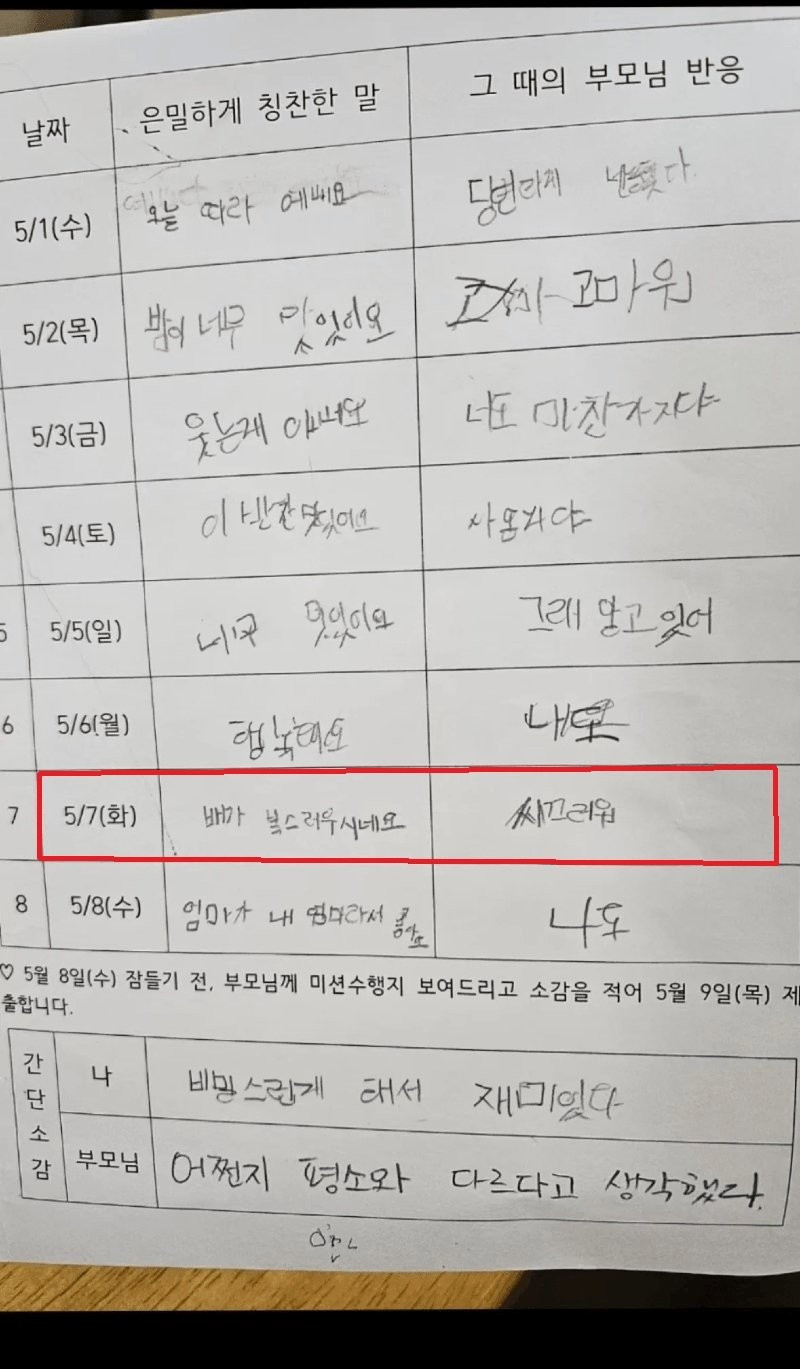 날짜 은밀하게 칭찬한 말 그 때의 부모님 반응
5/1(수) 오늘 따라 예뻐요
5/2(목) 밥이 너무 맛있어요 고마워
5/3(금) 웃는게 너도 마찬가지야
5/4(토) 이 반찬 맛있어요
5 5/5(일) 맛있어요 그래 알고 있어
6 5/6(월)
7 5/7(화) 배가 복스러우시네요 씨끄러워
8 5/8(수) 엄마가 내 엄마라서 나도
♡ 5월 8일(수) 잠들기 전, 부모님께 미션수행지 보여드리고 소감을 적어 5월 9일(목) 제
출합니다.
간단소감
나 비밍스런게 태서 재미있다
부모님 어쩐지 평소와 다르다고 생각했다.